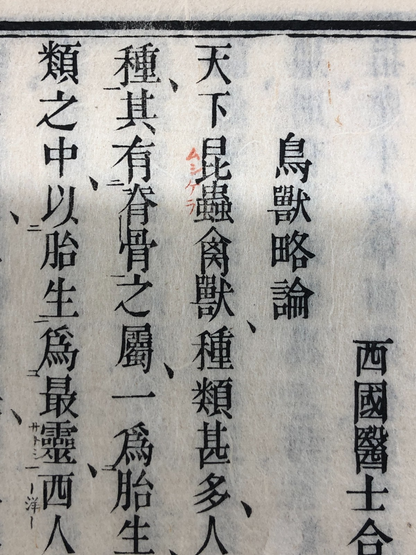 西國醫士合
鳥獸略論
天下昆蟲禽獸、種類甚多、人
ムシケラ
種、其有脊骨之屬、一爲胎生
類之中、以胎生爲最靈、西人
サトシ
洋